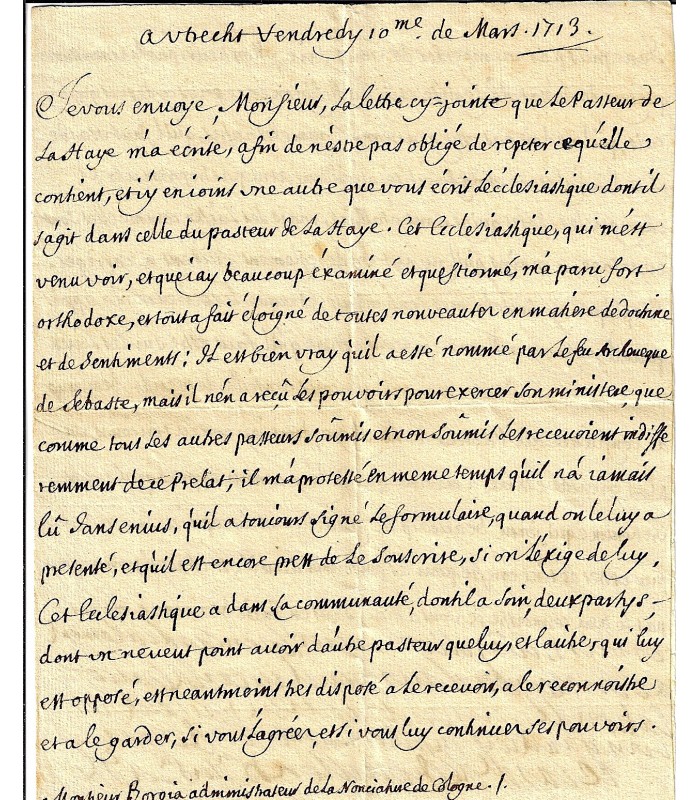 a Vtrecht Vendredy 10.me de Mars. 1713.
Je vous envoye, Monsieur, La lettre cy-jointe que Le Pasteur de
La Haye m'a écrite, afin de n'estre pas obligé de repeter ce qu'elle
contient, et i'y en ioins vne autre que vous écrit L'écclesiastique dont il
s'agit dans celle du pasteur de La Haye. Cet Ecclesiastique, qui m'est
venu voir, et que i'ay beaucoup éxaminé et questionné, m'a paru fort
orthodoxe, et tout a fait éloigné de toutes nouveautez en matiere de doctrine
et de Sentiments; Il est bien vray qu'il a esté nommé par Le feu Archeueque
de Sebaste, mais il n'en a reçû Les pouvoirs pour exercer son ministere, que
comme tous Les autres pasteurs soûmis et non soûmis Les recevoient indiffe
remment de ce Prelat; il m'a protesté En meme temps qu'il n'a iamais
lû Iansenius, qu'il a toujours signé Le formulaire, quand on le luy a
presenté, et qu'il est encore prest de Le Souscrire, si on L'éxige de luy.
Cet Ecclesiastique a dans La communauté, dont il a soin, deux partys -
dont vn ne veut point auoir d'autre pasteur que luy, et l'autre, qui luy
est opposé, est neantmoins tres disposé a Le recevoir, a le reconnoistre
et a le garder, si vous L'agréez, et si vous luy continuez ses pouvoirs.
Monsieur Borgia administrateur de La Nonciature de Cologne. /.